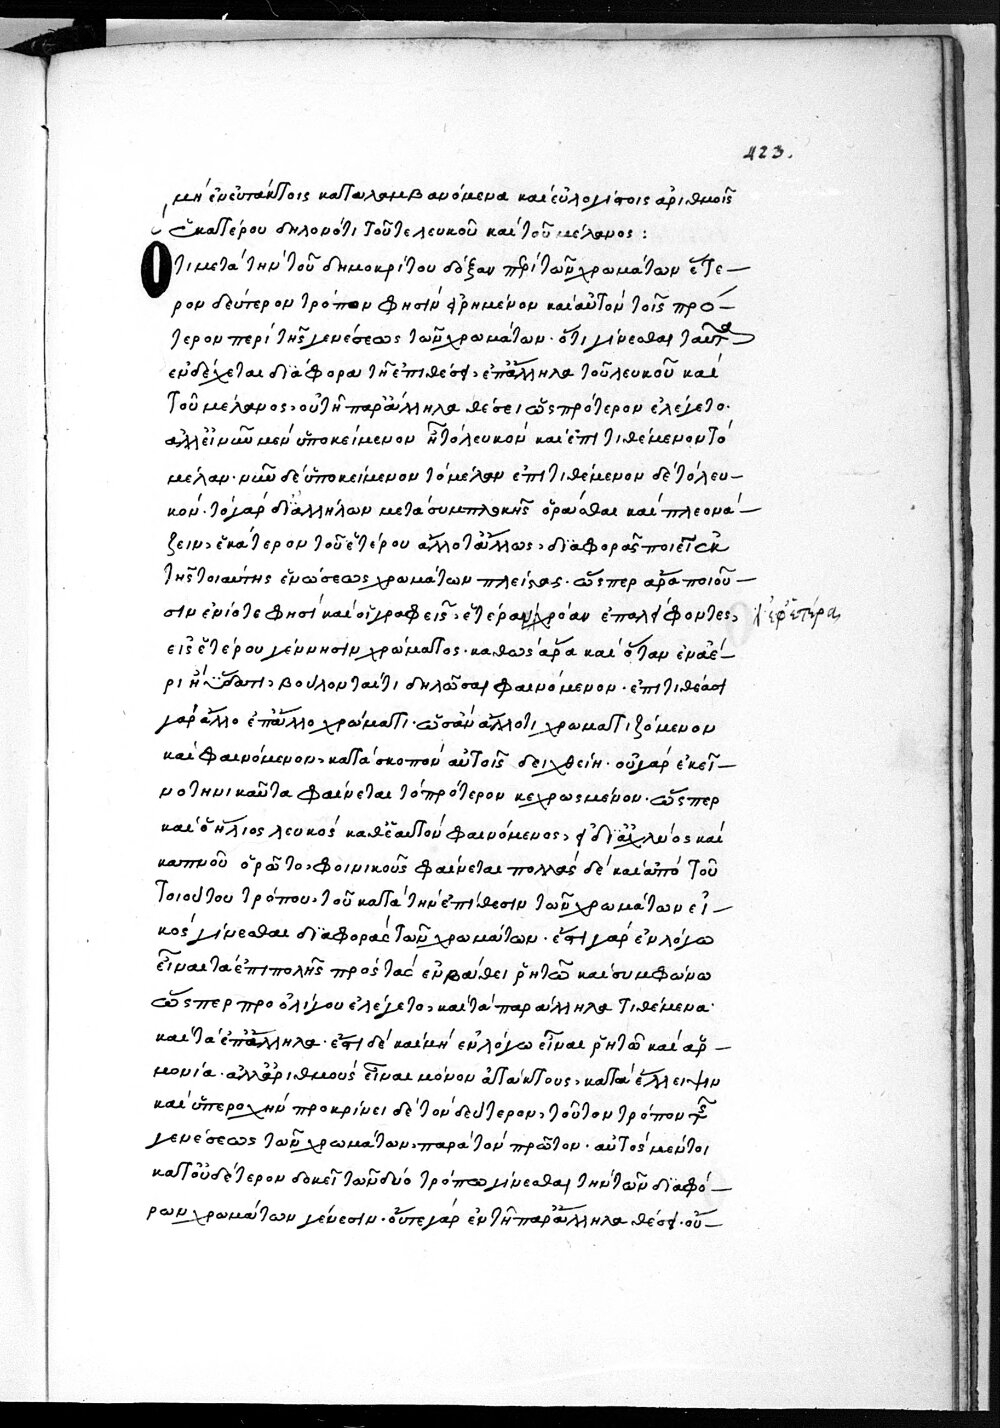 423.
μὴ ἐν εὐτάκτοις καταλαμβανόμενα καὶ εὐλογίστοις ἀριθμοῖς
ἑκατέρου δηλονότι τοῦ τε λευκοῦ καὶ τοῦ μέλανος :
Ὅτι μετὰ τὴν τοῦ δημοκρίτου δόξαν περὶ τῶν χρωμάτων ἕτε-
ρον δεύτερον τρόπον φησὶν εἰρημένον καὶ αὐτὸν τοῖς πρό-
τερον περὶ τῆς γενέσεως τῶν χρωμάτων· ὅτι γίνεσθαι ταῦτα
ἐνδέχεται διάφορα τῇ ἐπιθέσει, ἐπάλληλα τοῦ λευκοῦ καὶ
τοῦ μέλανος, οὐ τῇ παράλληλα θέσει ὡς πρότερον ἐλέγετο·
ἀλλ' εἰ νῦν μὲν ὑποκείμενον ἦ τὸ λευκὸν καὶ ἐπιτιθέμενον τὸ
μέλαν· νῦν δὲ ὑποκείμενον τὸ μέλαν ἐπιτιθέμενον δὲ τὸ λευ-
κόν· τὸ γὰρ δι' ἀλλήλων μετὰ συμπλοκῆς ὁρᾶσθαι καὶ πλεονά-
ζειν, ἑκάτερον τοῦ ἑτέρου ἄλλοτ' ἄλλως, διαφορὰς ποιεῖ ἐκ
τῆς τοιαύτης ἑνώσεως χρωμάτων πλείστας· ὥσπερ ἄρα ποιοῦ-
σιν ἐνίοτε φησὶ καὶ οἱ γραφεῖς, ἑτέραν χρόαν ἐπαλείφοντες, ἐφ' ἑτέρα
εἰς ἑτέρου γέννησιν χρώματος· καθὼς ἄρα καὶ ὅταν ἐν ἀέ-
ρι ἢ ὕδατι, βούλονταί τι δηλῶσαι φαινόμενον· ἐπιτιθέασι
γὰρ ἄλλο ἐπ' ἄλλο χρώματι· ὡσὰν ἄλλο τι χρωματιζόμενον
καὶ φαινόμενον, κατὰ σκοπὸν αὐτοῖς δειχθείη· οὐ γὰρ ἐκεῖ-
νο τηνικαῦτα φαίνεται τὸ πρότερον κεχρωσμένον· ὥσπερ
καὶ ὁ ἥλιος λευκὸς καθ' ἑαυτὸν φαινόμενος, εἰ δι' ἀχλύος καὶ
καπνοῦ ὁρῷτο, φοινικοῦς φαίνεται πολλὰς δὲ καὶ ἀπὸ τοῦ
τοιούτου τρόπου, τοῦ κατὰ τὴν ἐπίθεσιν τῶν χρωμάτων εἰ-
κὸς γίνεσθαι διαφορὰς τῶν χρωμάτων· ἔστι γὰρ ἐν λόγω
εἶναι τὰ ἐπιπολῆς πρὸς τὰς ἐν βάθει ῥητῶ καὶ συμφώνω
ὥσπερ πρὸ ὀλίγου ἐλέγετο, καὶ τὰ παράλληλα τιθέμενα·
καὶ τὰ ἐπάλληλα· ἔστι δὲ καὶ μὴ ἐν λόγω εἶναι ῥητῶ καὶ ἁρ-
μονία· ἀλλ' ἀριθμοὺς εἶναι μόνον ἀτάκτους, κατὰ ἔλλειψιν
καὶ ὑπεροχὴν προκρίνει δὲ τὸν δεύτερον, τοῦτον τρόπον τῆς
γενέσεως τῶν χρωμάτων, παρὰ τὸν πρῶτον· αὐτὸς μέντοι
κατ' οὐδέτερον δοκεῖ τῶν δύο τρόπω γίνεσθαι τὴν τῶν διαφό-
ρων χρωμάτων γένεσιν· οὔτε γὰρ ἐν τῇ παράλληλα θέσει· οὔ-